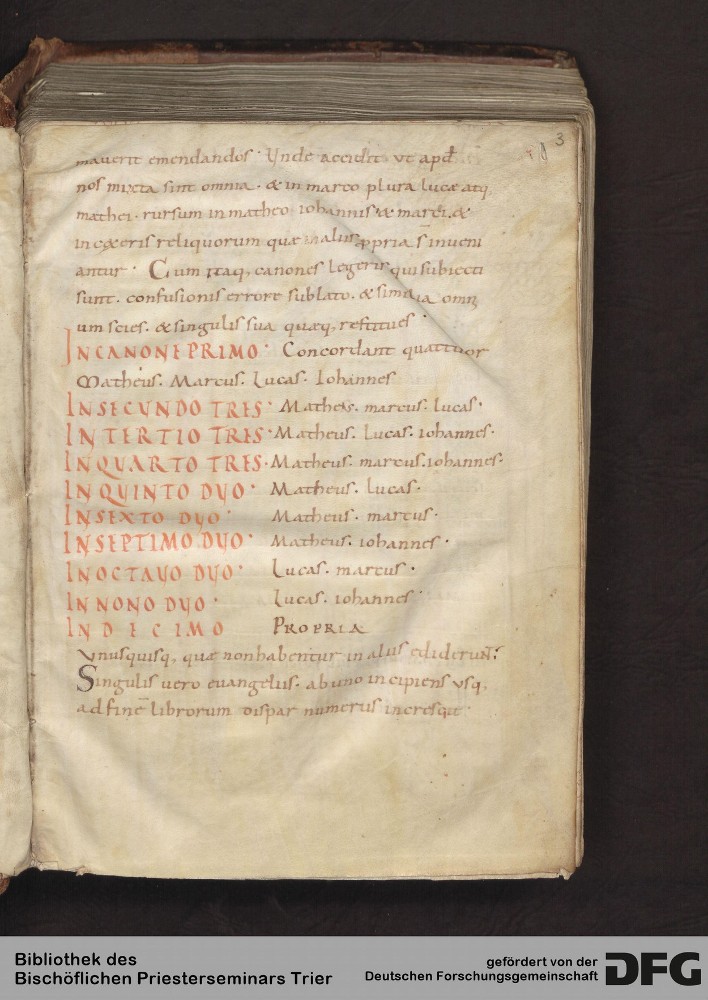 3
mauerit emendandos· Unde accidit ut apđ
nos mixta sint omnia· & in marco plura lucae atq,
mathei· rursum in matheo iohannis· & marci· &
in cęteris reliquorum quae in aliis ꝓpria s̄ inueni
antur· Cum itaq, canones legeris qui subiecti
sunt· confusionis errore sublato· & similia omni
um scies· & singulis sua quaeq, restitues·
IN CANONE PRIMO· Concordant quattuor
Matheus· Marcus· Lucas· Iohannes
IN SECUNDO TRES· Matheus· marcus· lucas·
IN TERTIO TRES· Matheus· Lucas· iohannes·
IN QUARTO TRES· Matheus· marcus· iohannes·
IN QUINTO DUO· Matheus· lucas·
IN SEXTO DUO· Matheus· marcus·
IN SEPTIMO DUO· Matheus· iohannes·
IN OCTAUO DUO· Lucas· marcus·
IN NONO DUO· Lucas· iohannes·
IN DECIMO PROPRIA
Unusquisq, quae non habentur in aliis ediderunt·
Singulis uero euangeliis· ab uno incipiens usq,
ad finē librorum dispar numerus increscit·
Bibliothek des
Bischöflichen Priesterseminars Trier
gefördert von der
Deutschen Forschungsgemeinschaft
DFG